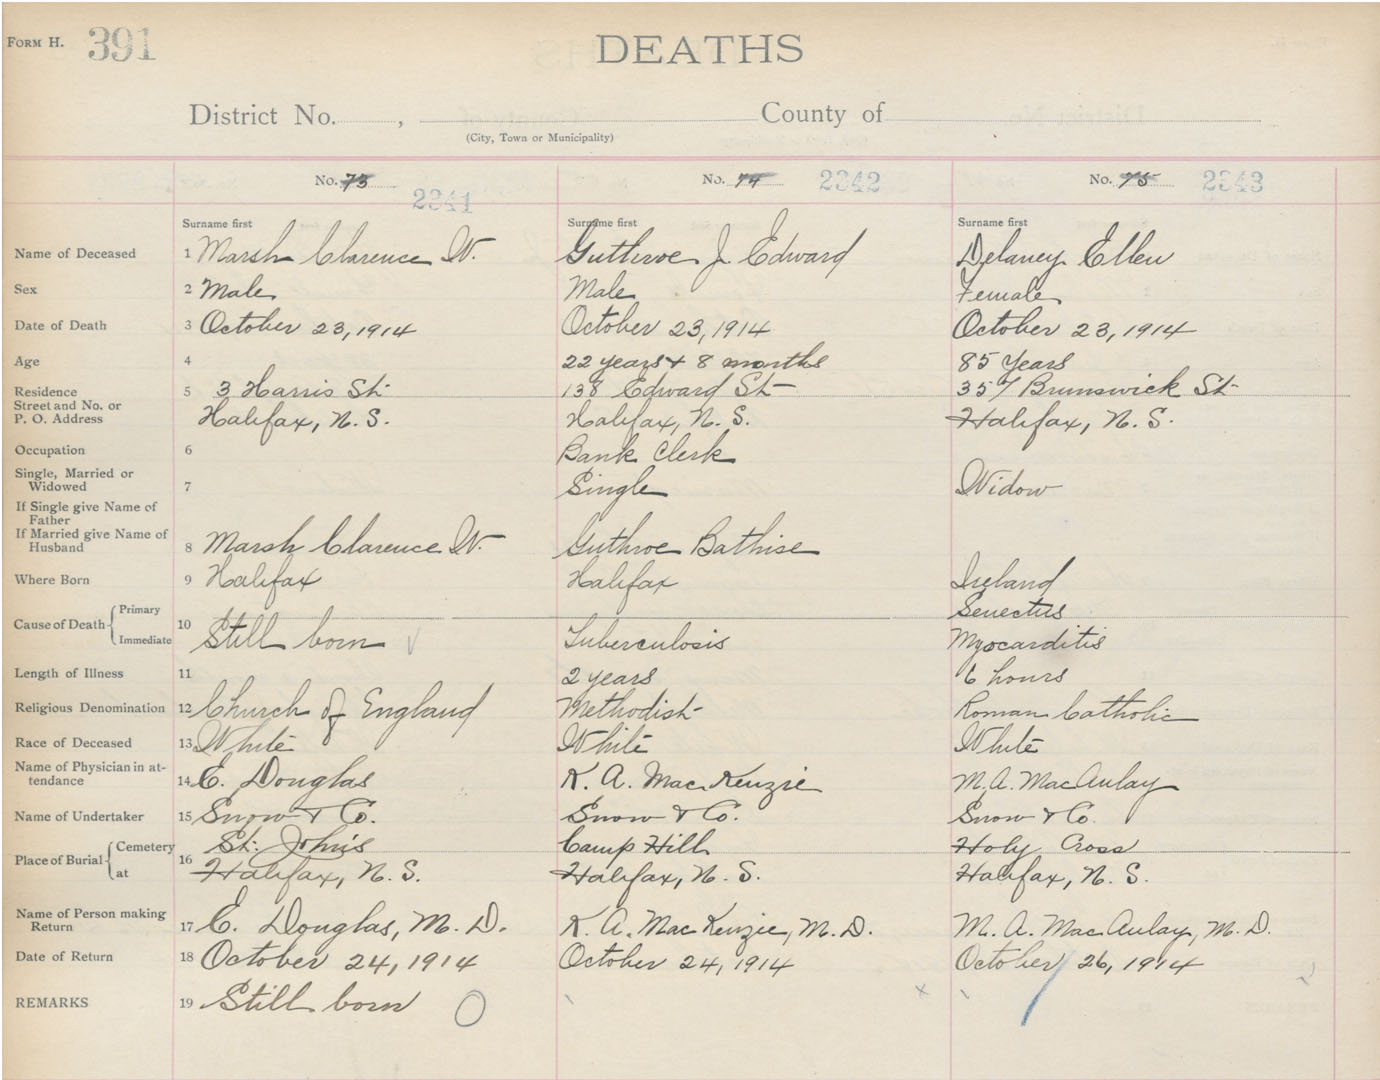 FORM H. 391
DEATHS
District No. , County of
(City, Town or Municipality)
No. 73 2341 No. 74 2342 No. 75 2343
Surname first Surname first Surname first
Name of Deceased 1 Marsh Clarence W. Guthroe J. Edward Delaney Ellen
Sex 2 Male Male Female
Date of Death 3 October 23, 1914 October 23, 1914 October 23, 1914
Age 4 22 years & 8 months 85 Years
Residence 5 3 Harris St 138 Edward St 357 Brunswick St
Street and No. or
P. O. Address Halifax, N. S. Halifax, N. S. Halifax, N. S.
Occupation 6 Bank Clerk
Single, Married or
Widowed 7 Single Widow
If Single give Name of
Father
If Married give Name of
Husband 8 Marsh Clarence W. Guthroe Bathise
Where Born 9 Halifax Halifax Ireland
Primary Senectus
Cause of Death 10
Immediate Still born Tuberculosis Myocarditis
Length of Illness 11 2 years 6 hours
Religious Denomination 12 Church of England Methodist Roman Catholic
Race of Deceased 13 White White White
Name of Physician in at-
tendance 14 E. Douglas K. A. MacKenzie M. A. MacAulay
Name of Undertaker 15 Snow & Co. Snow & Co. Snow & Co.
Cemetery St. John's Camp Hill Holy Cross
Place of Burial 16
at Halifax, N. S. Halifax, N. S. Halifax, N. S.
Name of Person making
Return 17 E. Douglas, M. D. K. A. MacKenzie, M. D. M. A. MacAulay, M. D.
Date of Return 18 October 24, 1914 October 24, 1914 October 26, 1914
REMARKS 19 Still born